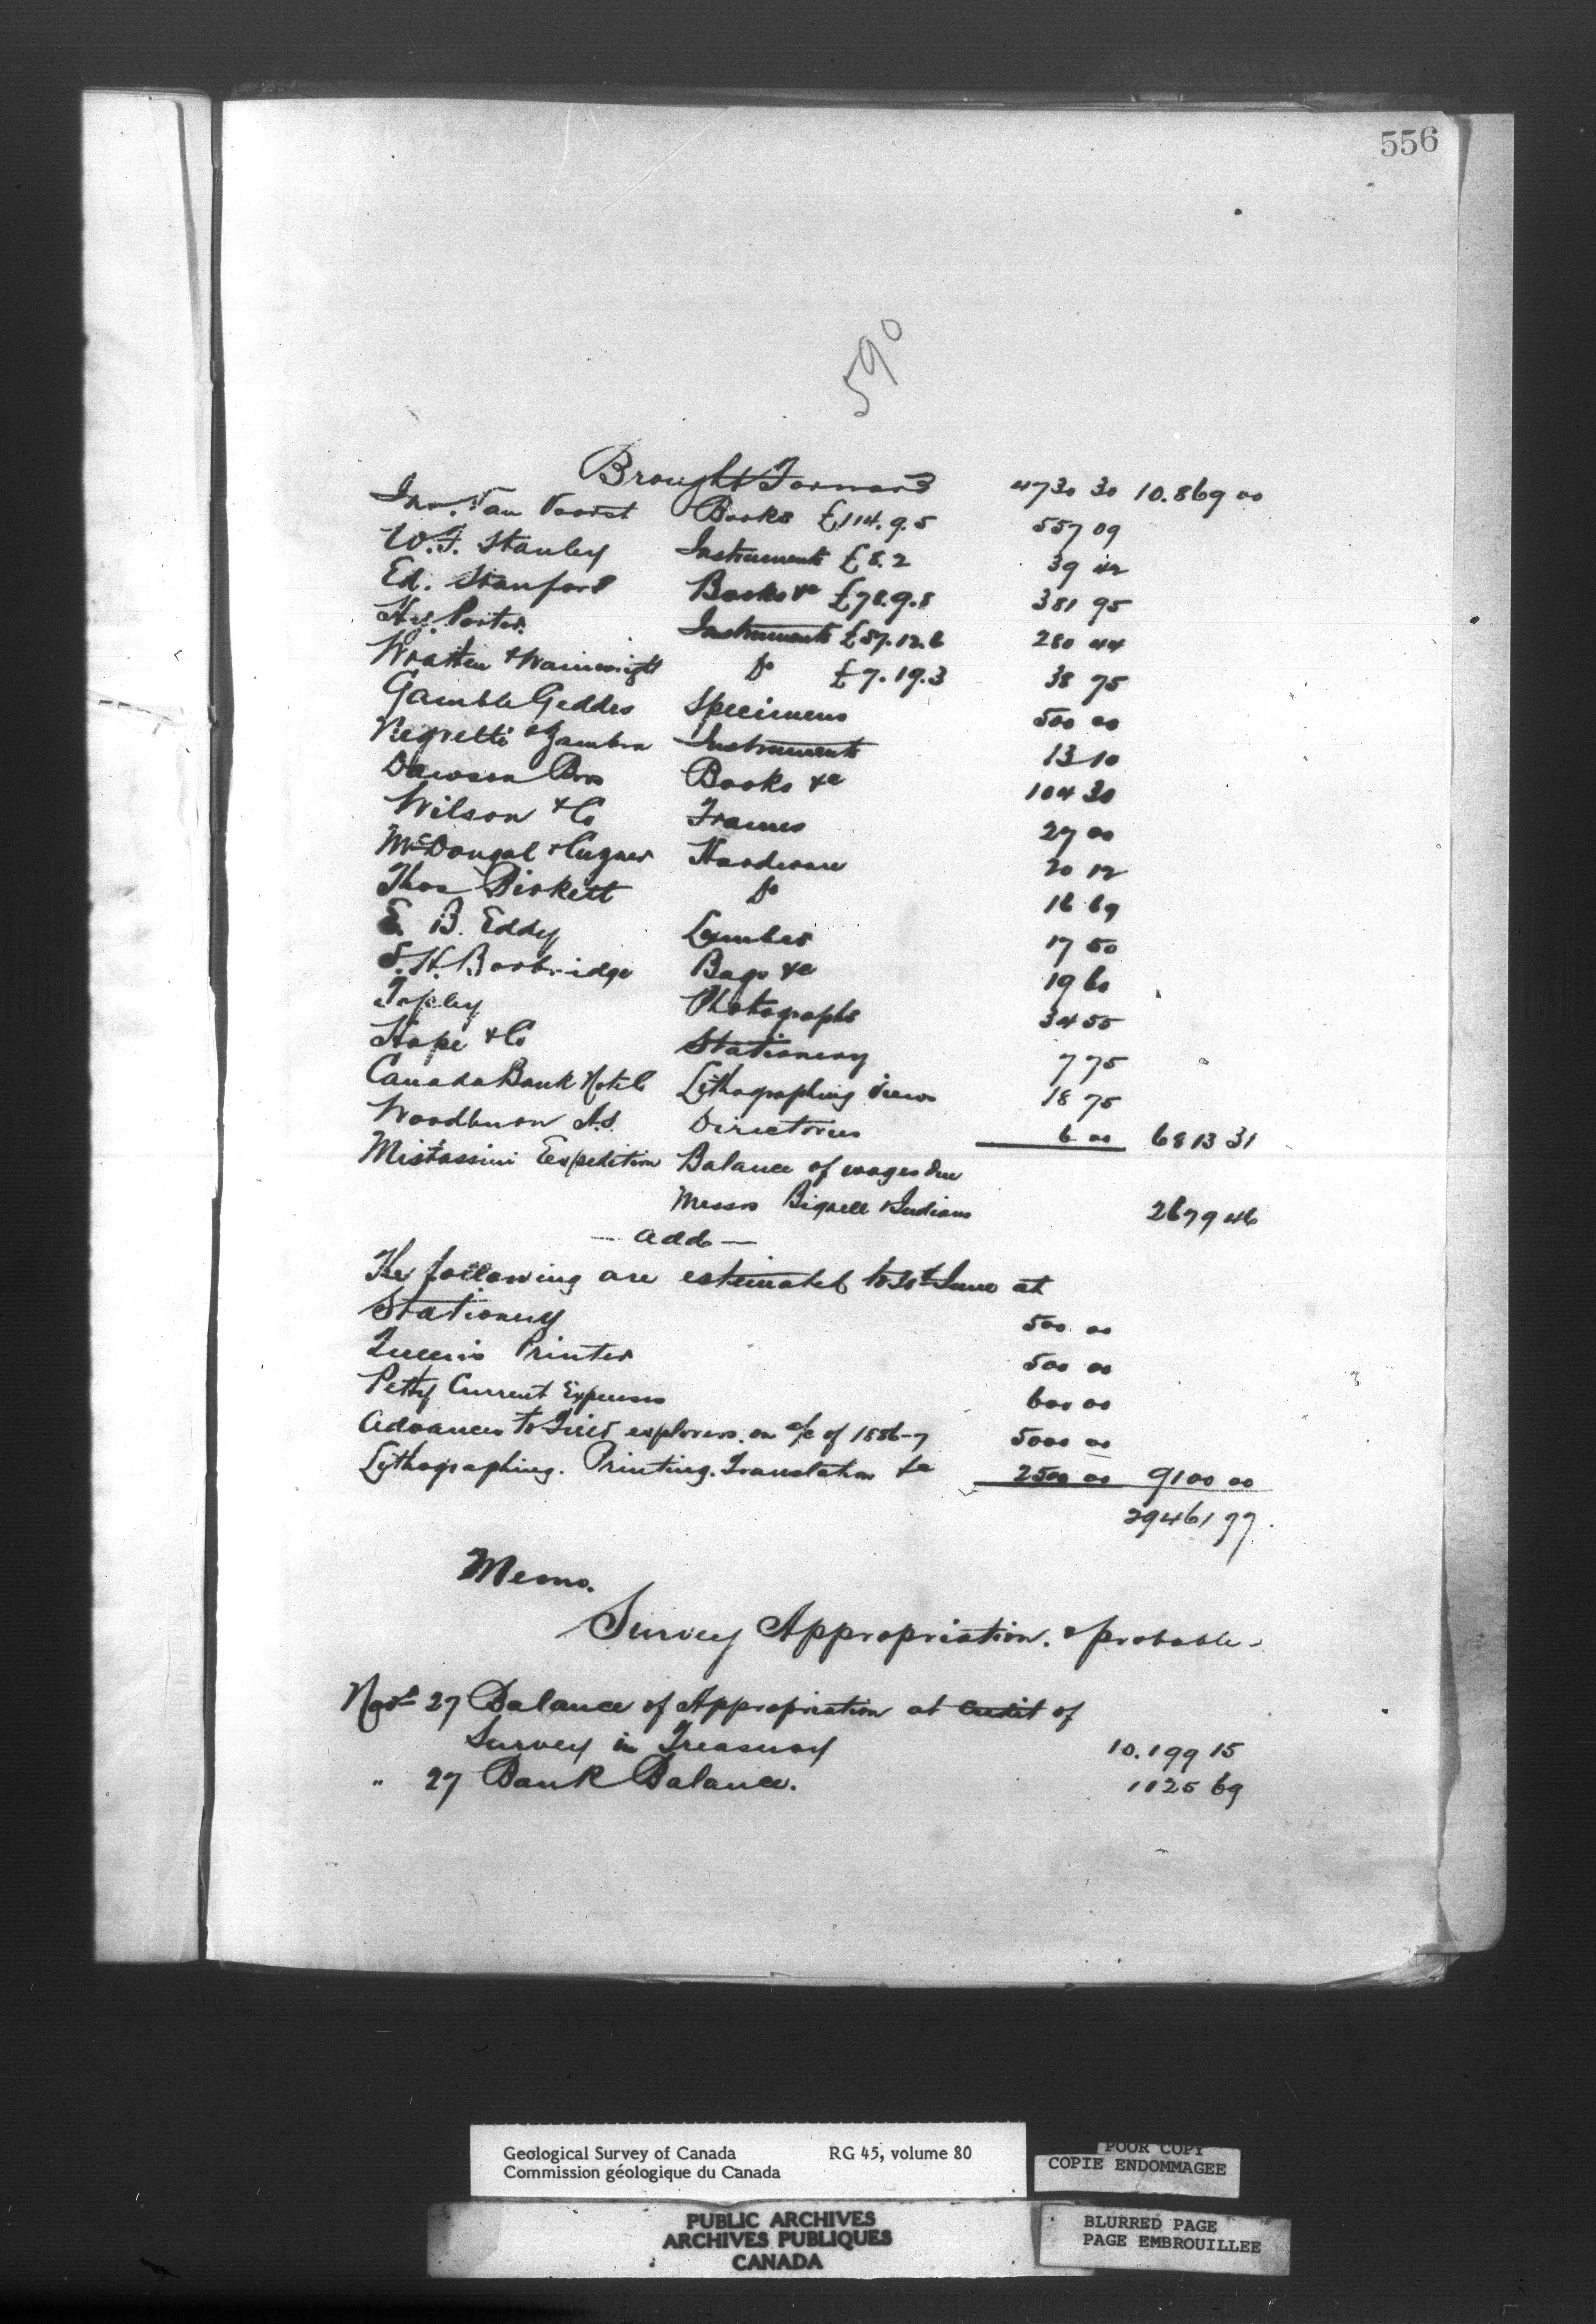 556
590
Brought Forward 4730 30 10.869 00
Jno. Van Voorst Books £114.9.5 557 09
W.F. Stanley Instruments £8.2 39 42
Ed. Stanford Books &c £78.9.8 381 95
Hy. Porter Instruments £57.12.6 280 44
Wratten & Wainwright Do £7.19.3 38 75
Gamble Geddes Specimens 500 00
Negretti & Zambra Instruments 13 10
Dawson Bros Books &c 104 30
Wilson & Co Frames 27 00
McDougal & Cuzner Hardware 20 12
Thos Birkett Do 16 69
E. B. Eddy Lumber 17 50
S.H. Borbridge Bags &c 19 60
Topley Photographs 34 55
Hope & Co Stationery 7 75
Canada Bank Note Co Lithographing views 18 75
Woodburn A.S. Directories 6 00 6813 31
Mistassini Expedition Balance of wages due
Messrs Bignell & Indians 2679 46
— Add —
The following are estimated to 30th June at
Stationery 500 00
Queens Printer 500 00
Petty Current Expenses 600 00
Advances to Field explorers on a/c of 1886-7 5000 00
Lithographing. Printing. Translation &c 2500 00 9100 00
29461 77.
Memo.
Survey Appropriation. & probable -
27 Balance of Appropriation at Credit of
Survey in Treasury 10.199 15
" 27 Bank Balance. 1125 69
Geological Survey of Canada RG 45, volume 80
Commission géologique du Canada
POOR COPY
COPIE ENDOMMAGEE
PUBLIC ARCHIVES
ARCHIVES PUBLIQUES
CANADA
BLURRED PAGE
PAGE EMBROUILLEE